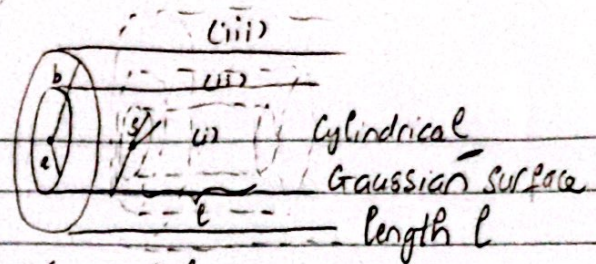 (iii)
b (ii)
a s (i) Cylindrical
Gaussian surface
l length l